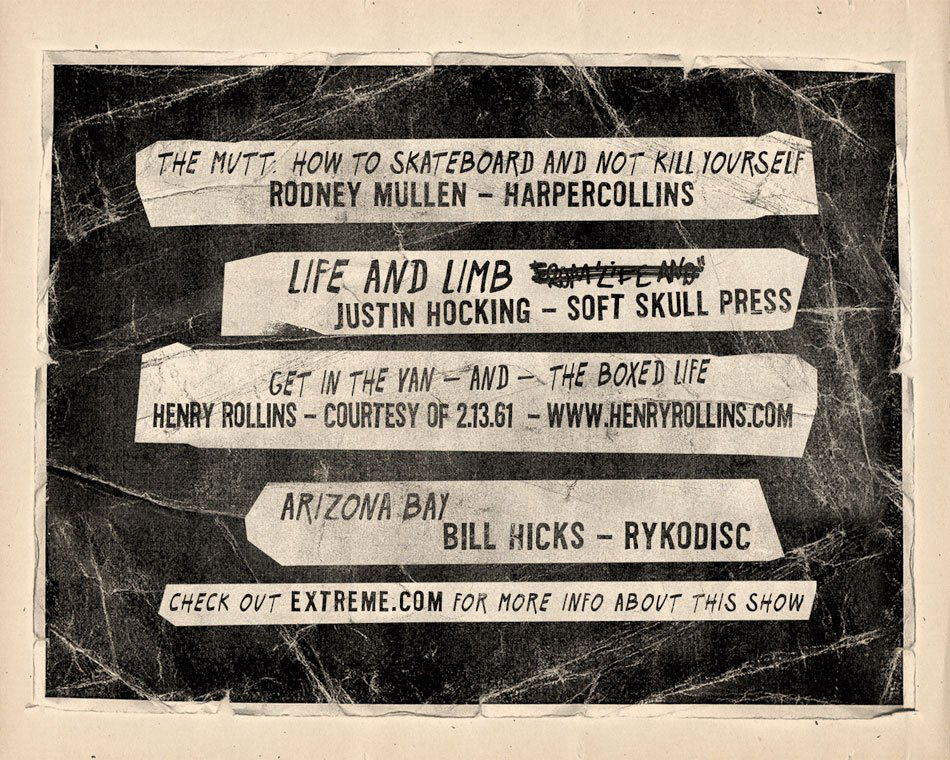 THE MUTT: HOW TO SKATEBOARD AND NOT KILL YOURSELF
RODNEY MULLEN – HARPERCOLLINS
LIFE AND LIMB
JUSTIN HOCKING – SOFT SKULL PRESS
GET IN THE VAN – AND – THE BOXED LIFE
HENRY ROLLINS – COURTESY OF 2.13.61 – WWW.HENRYROLLINS.COM
ARIZONA BAY
BILL HICKS – RYKODISC
CHECK OUT EXTREME.COM FOR MORE INFO ABOUT THIS SHOW